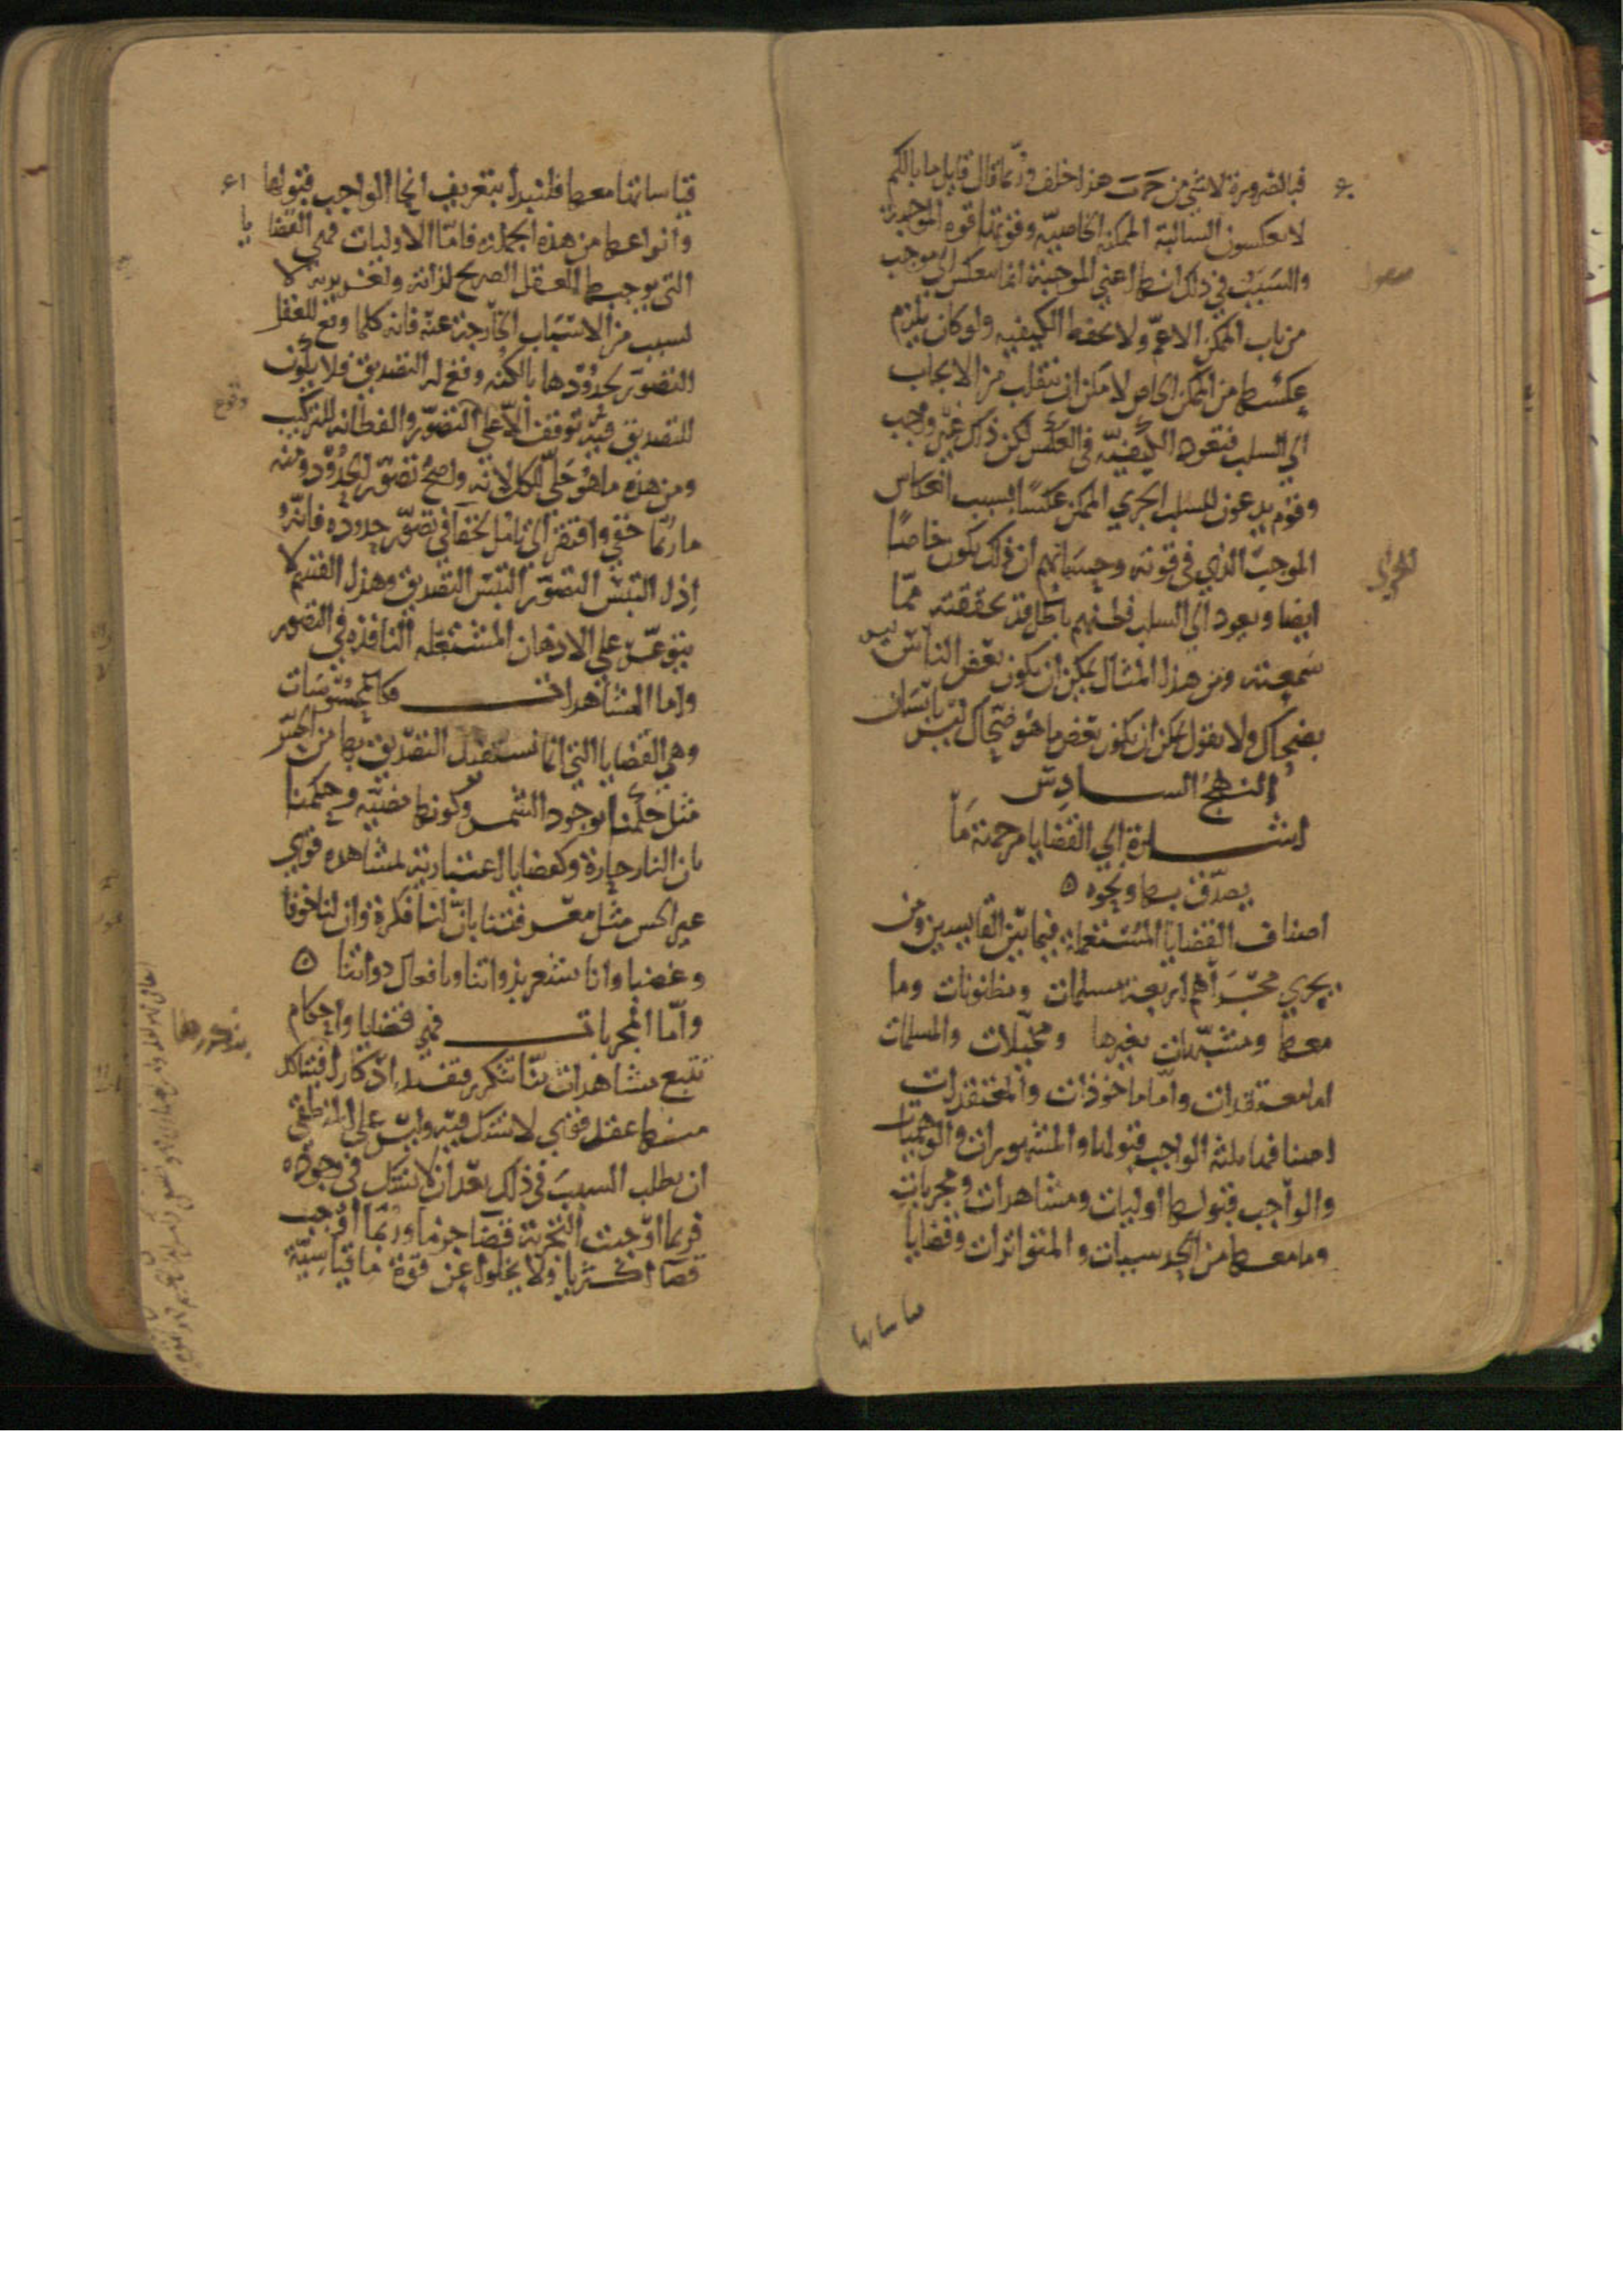 ٦٠
فبالضرورة لا شي من حَ بَ هذا خلف وربما قال قايل ما بالكم
لا تعكسون السالبة الممكنة الخاصية وقوتها قوه الموجبة
والسَبَبُ في ذلك انها اعني الموجبة انما تنعكس الى موجب
من باب الممكن الاعمّ ولا تحفظ الكيفيه ولو كان يلزم
عكسُها من الممكن الخاص لامكن ان تنقلب من الايجاب
الي السلب فتعود الكيفيّه في العكس لكن ذلك غير واجب
وقوم يدعون للسلب الجزي الممكن عكسًا بسبب انعكاس
الموجب الذي في قوته وحسبانهم ان ذلك يكون خاصًا
ايضا ويعود الي السلب فظنهم باطل قد تحققته ممّا
سَمِعته ومن هذا المثال يمكن ان يكون بعض الناس ليس
بضحاك ولا نقول يمكن ان يكون بعض ما هو ضحاك ليس بانسان
النهجُ السادِس
اشارة الي القضايا من جهة مَا
يصدّق بها ونحوه ٥
اصناف القضايا المُستعملة فيما بَيْن القايسين ومن
يجري مجراهم اربعة مسلمات ومظنونات وما
معها ومشبّهات بغيرها ومخيّلات والمسلمات
اما معتقدات وامّا ماخوذات والمعتقدات
اصنافها ثلثه الواجب قبولها والمشهورات والوهميات
والواجب قبولها اوليات ومشاهدات ومجربات
وما معها من الحدسيات والمتواترات وقضايا
٦١
قياساتها معها فلنبدا بتعريف انحا الواجب قبولها
وانواعها من هذه الجملة فامّا الاوليات فهي القضايا
التي يوجبها العقل الصريح لذاته ولغريزته لا
لسبب من الاسباب الخارجة عنه فانه كلما وقع للعقل
التصوّر لحدُوْدها بالكنه وقع له التصديق فلا يكون
للتصديق فيه توقف الّا على التصوّر والفطانه للتركيب
وقوع
ومن هذه ما هُو جَلي للكل لانه واضحُ تصوّر الحُدُوْد ومنه
ما ربمّا خفي وافتقر الى تامل لخفا في تصوّر حدوده فانّه
اِذا التبسَ التصوّر التبسَ التصديق وهذا القسم لا
يتوعّر على الاذهان المشتعله النافذه في التصور
واما المشاهدات فكالمحسُوسَات
وهي القضايا التي انما نستفيد التصديق بها من الحِسّ
مثل حكمنا بوجود الشمس وكونها مضيّه وحكمنا
بان النار حارة وكقضايا اعتبارية لمشاهده قوي
غير الحس مثل معرفتنا بانّ لنا فكرة وان لنا خوفا
وغضبا وانا نشعر بذواتنا وبافعال ذواتنا ٥
وامّا المجربات فهي قضايا واحكام
تتبع مشاهدات منّا تتكرر فتفيد اِذكارا فيتاكد
منها عقد قوي لا يشك فيه وليس على المنطقي
ان يطلب السببَ في ذلك بعد ان لا يشك في وجوده
فربما اوجبت التجربة قضا جزما وربما اوجبت
قضا اكثريا ولا يخلوا عن قوّة ما قياسيّة